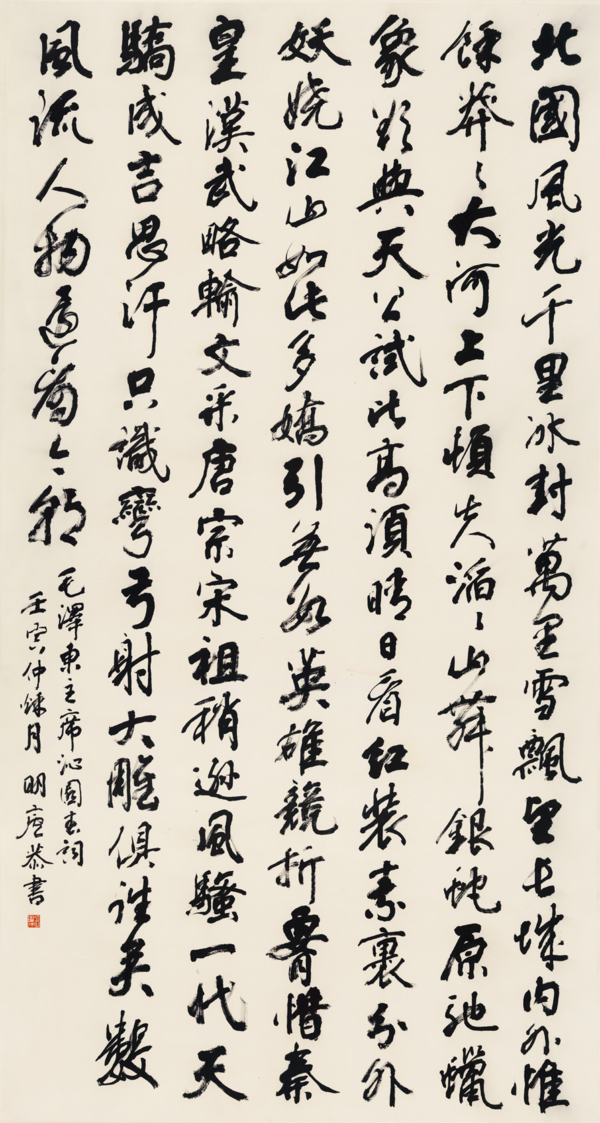 北國風光千里冰封萬里雪飄望長城内外惟
餘莽〻大河上下頓失滔〻山舞銀蛇原馳蠟
象欲與天公試比高須晴日看紅裝素裹分外
妖嬈江山如此多嬌引無数英雄競折腰惜秦
皇漢武略輸文采唐宗宋祖稍遜風騷一代天
驕成吉思汗只識彎弓射大雕俱往矣數
風流人物還看今朝
毛澤東主席沁園春詞
壬寅仲秋月明唐恭書